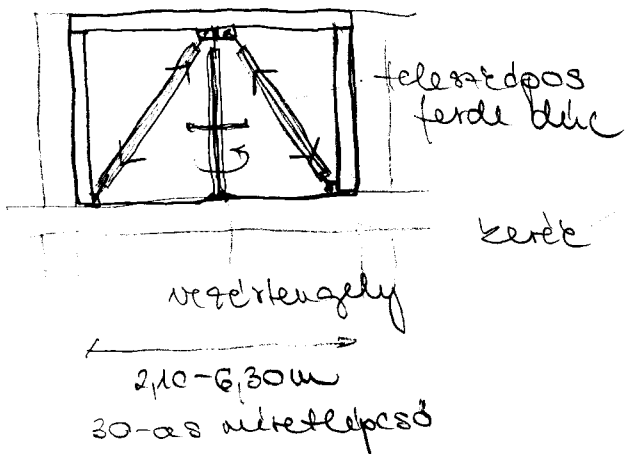 teleszkópos
ferde dúc
kerék
vezértengely
2,10-6,30m
30-as méretlépcső